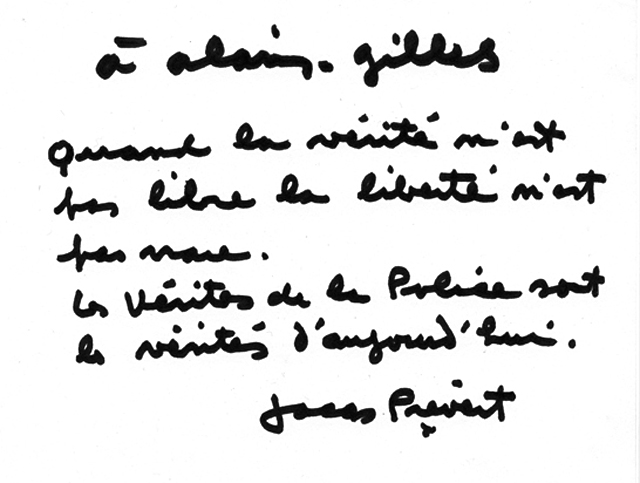 à alain-gilles
Quand la vérité n'est
pas libre la liberté n'est
pas vraie.
Les Vérités de la Police sont
les vérités d'aujourd'hui.
Jacques Prévert